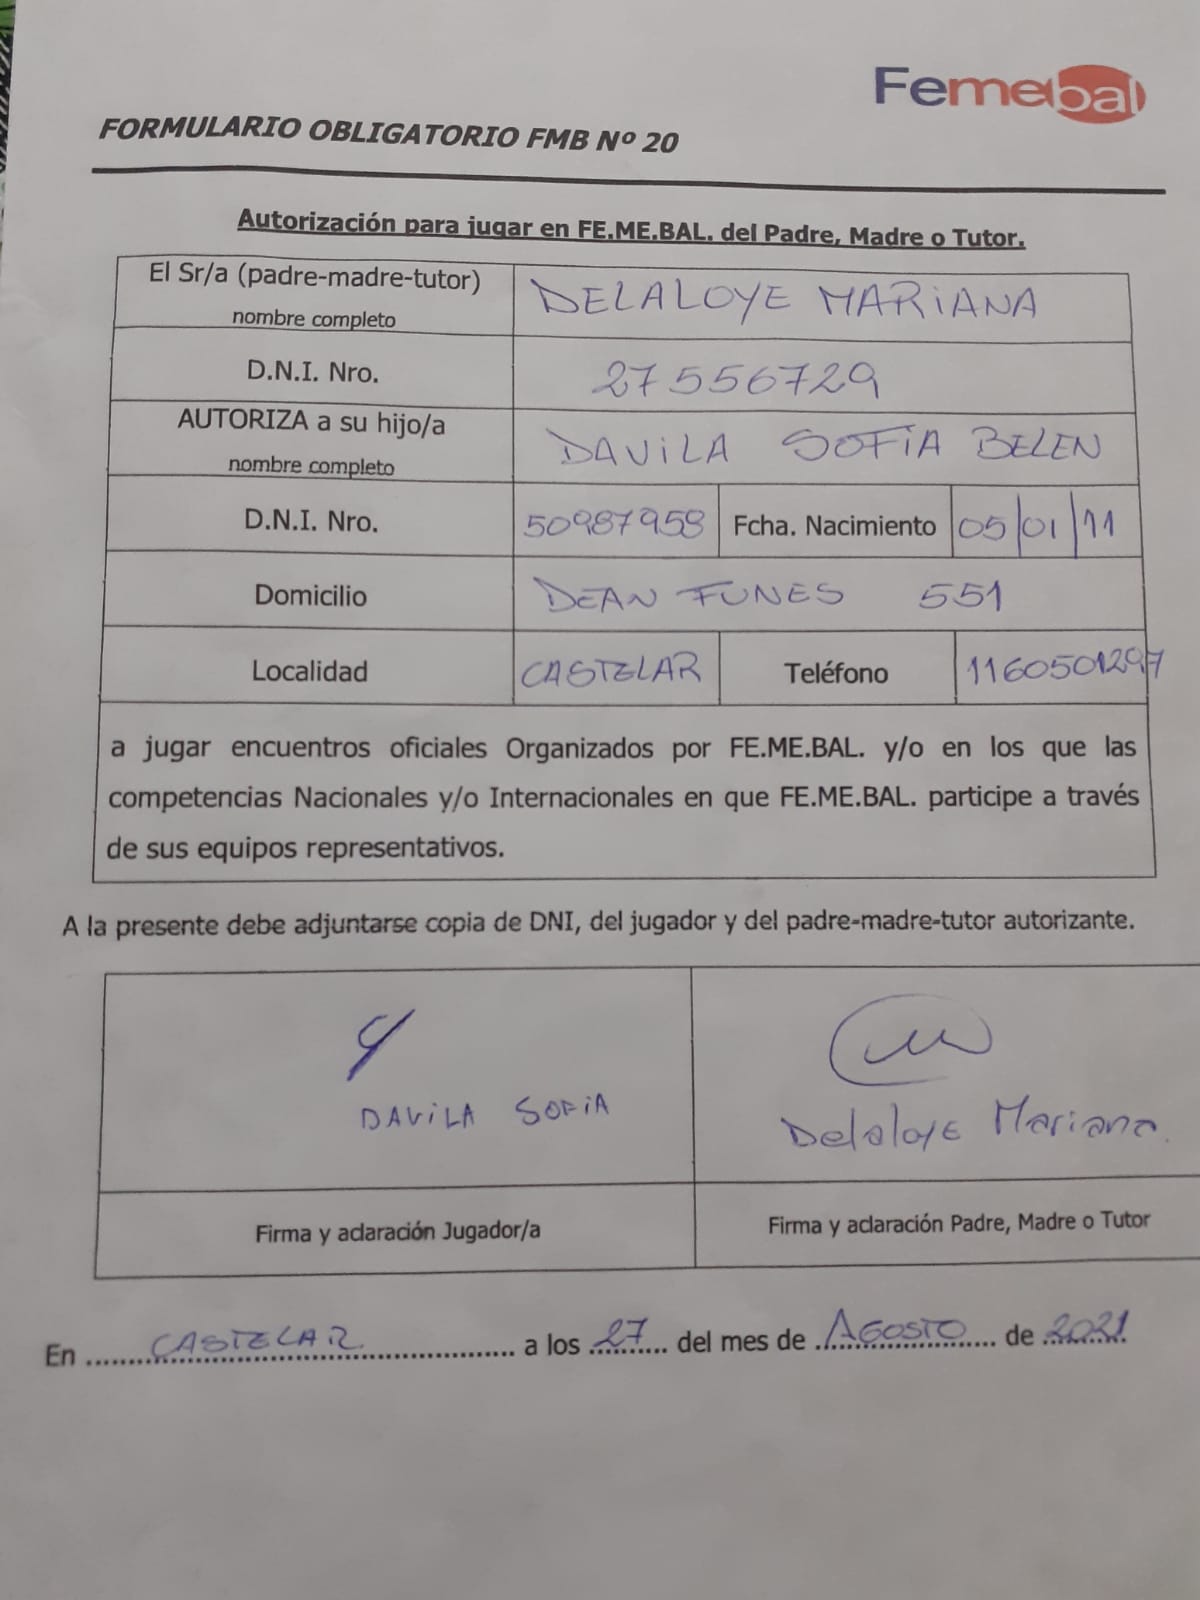 Femebal
FORMULARIO OBLIGATORIO FMB Nº 20
Autorización para jugar en FE.ME.BAL. del Padre, Madre o Tutor.
El Sr/a (padre-madre-tutor)
nombre completo
DELALOYE MARIANA
D.N.I. Nro.
27556729
AUTORIZA a su hijo/a
nombre completo
DAVILA SOFIA BELEN
D.N.I. Nro.
50987958
Fcha. Nacimiento
05/01/11
Domicilio
DEAN FUNES 551
Localidad
CASTELAR
Teléfono
1160501297
a jugar encuentros oficiales Organizados por FE.ME.BAL. y/o en los que las
competencias Nacionales y/o Internacionales en que FE.ME.BAL. participe a través
de sus equipos representativos.
A la presente debe adjuntarse copia de DNI, del jugador y del padre-madre-tutor autorizante.
DAVILA SOFIA
Delaloye Mariana.
Firma y aclaración Jugador/a
Firma y aclaración Padre, Madre o Tutor
En CASTELAR a los 27 del mes de AGOSTO de 2021